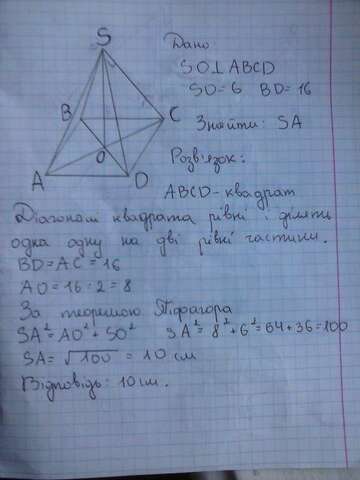 S
B
C
O
A
D
Дано
SO⊥ABCD
SO=6 BD=16
Знайти: SA
Розв'язок:
ABCD-квадрат
Діагоналі квадрата рівні і ділять
одна одну на дві рівні частини.
BD=AC=16
AO=16:2=8
За теоремою Піфагора
SA²=AO²+SO² SA²=8²+6²=64+36=100
SA=√100=10 см
Відповідь: 10 см.